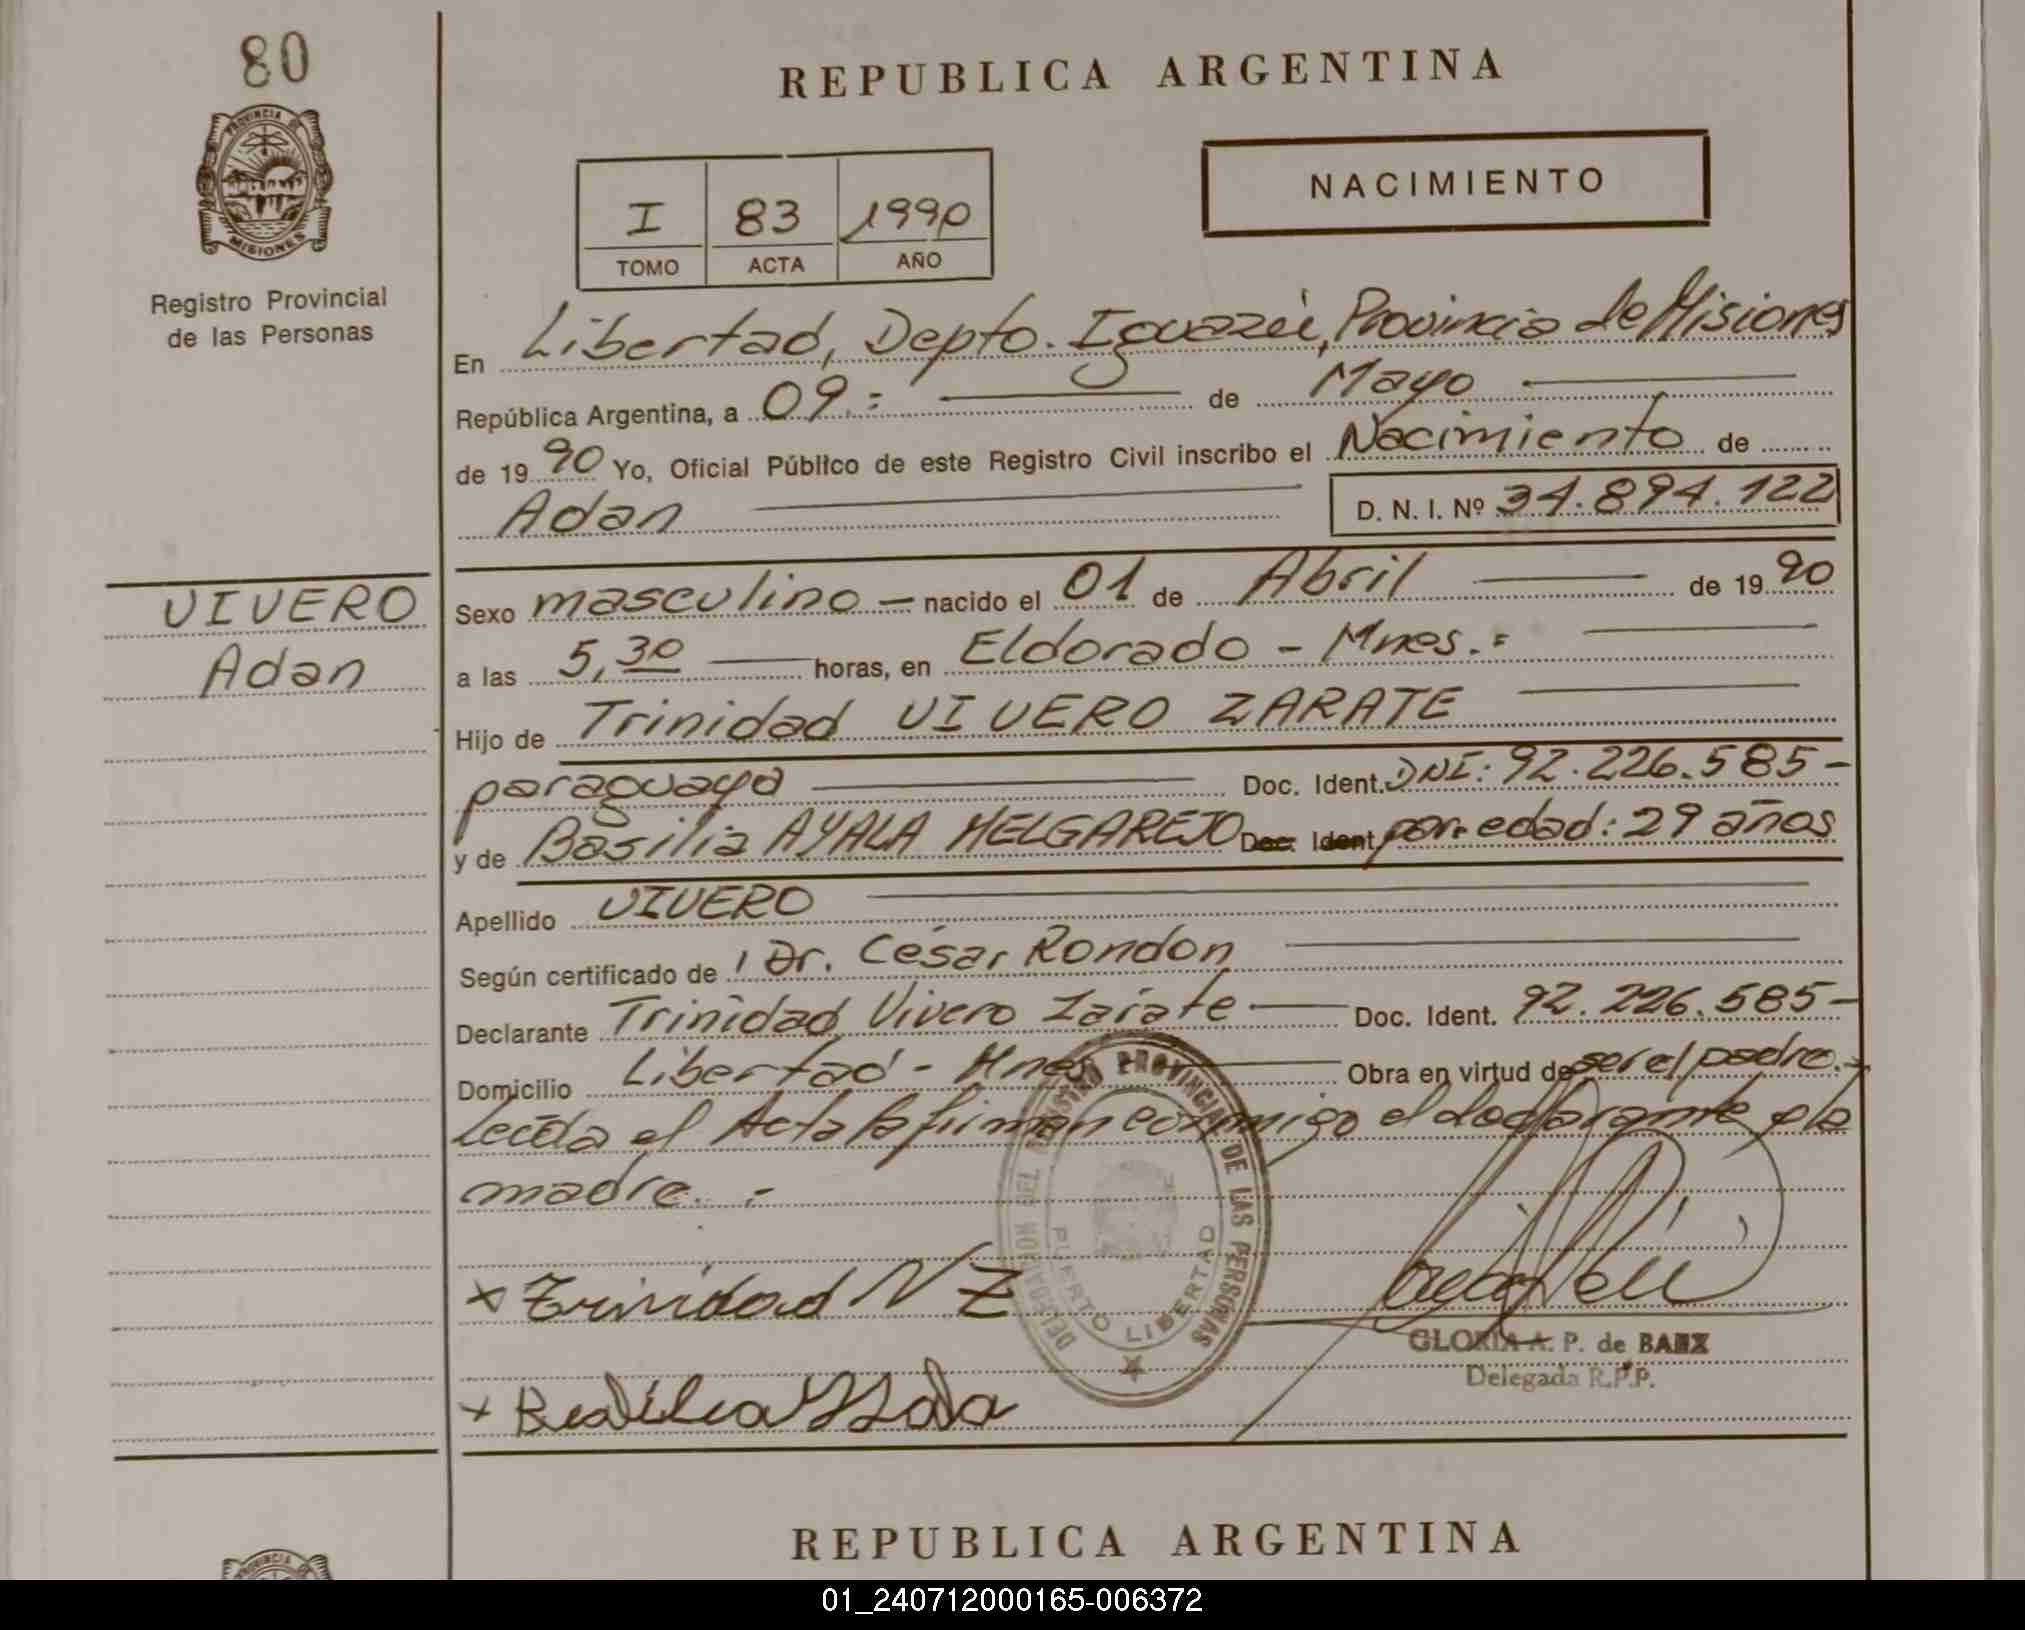 80
REPUBLICA ARGENTINA
PROVINCIA DE MISIONES
NACIMIENTO
I 83 1990
TOMO ACTA AÑO
Registro Provincial
de las Personas
En Libertad, Depto. Iguazú, Provincia de Misiones
República Argentina, a 09.= de Mayo
de 1990 Yo, Oficial Público de este Registro Civil inscribo el Nacimiento de
Adan D. N. I. Nº 34.894.122
VIVERO
Adan
Sexo masculino — nacido el 01 de Abril de 1990
a las 5,30 horas, en Eldorado - Mnes.=
Hijo de Trinidad VIVERO ZARATE
paraguaya Doc. Ident. DNI: 92.226.585-
y de Basilia AYALA MELGAREJO Doc. Ident. por edad: 29 años
Apellido VIVERO
Según certificado de Dr. César Rondon
Declarante Trinidad Vivero Zarate Doc. Ident. 92.226.585-
Domicilio Libertad - Mnes Obra en virtud de ser el padre.-
Leída el Acta la firman conmigo el declarante y la
madre.-
DEL REGISTRO PROVINCIAL DE LAS PERSONAS
PUERTO LIBERTAD
x Trinidad V Z
GLORIA A. P. de BAEX
Delegada R.P.P.
x Basilia Ayala
REPUBLICA ARGENTINA
PROVINCIA
01_240712000165-006372